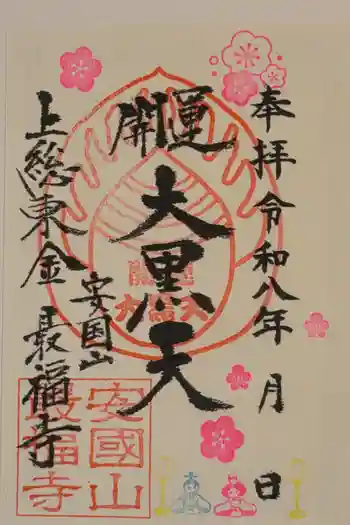 奉拝令和八年 月 日
開運
大黒天
上総東金 最福寺
安国山
安國山
最福寺